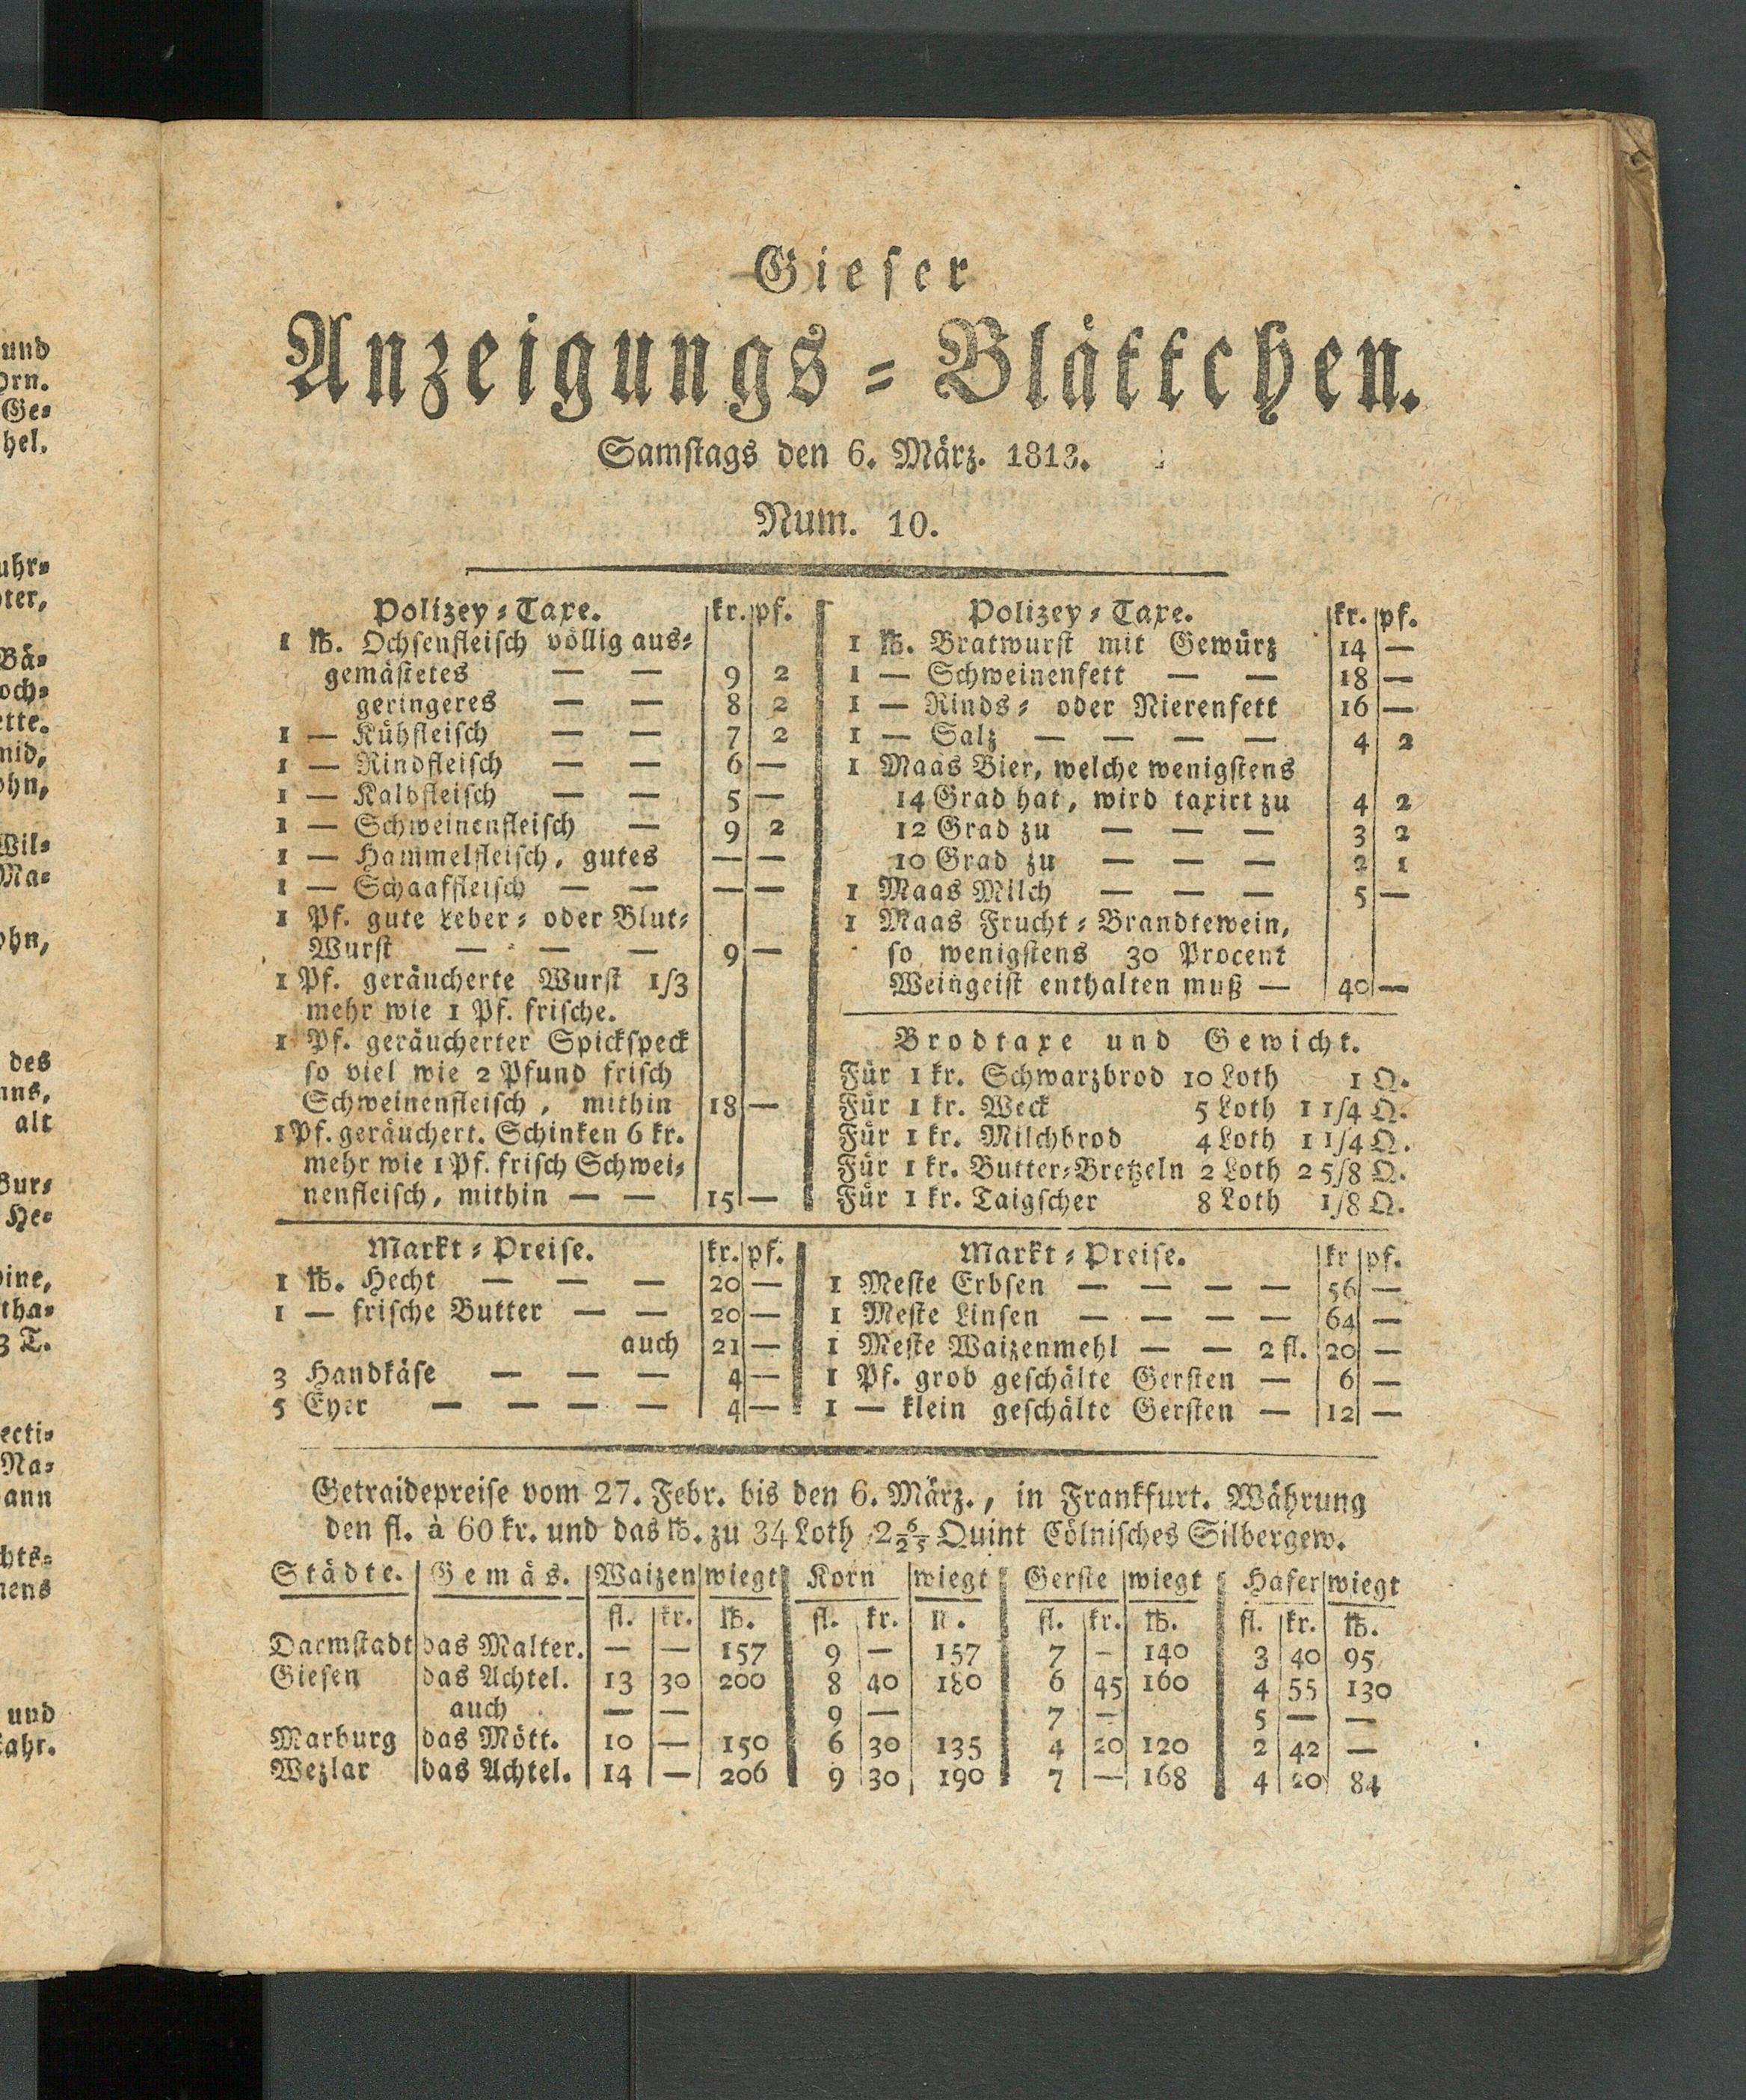 Gieser
Anzeigungs-Blättchen.
Samstags den 6. März. 1813.
Num. 10.
Polizey-Taxe. kr. pf.
1 ℔. Ochsenfleisch völlig aus-
gemästetes — — 9 2
geringeres — — 8 2
1 — Kühfleisch — — 7 2
1 — Rindfleisch — — 6 —
1 — Kalbfleisch — — 5 —
1 — Schweinenfleisch — 9 2
1 — Hammelfleisch, gutes — —
1 — Schaaffleisch — — — —
1 Pf. gute Leber- oder Blut-
Wurst — — — 9 —
1 Pf. geräucherte Wurst 1/3
mehr wie 1 Pf. frische.
1 Pf. geräucherter Spickspeck
so viel wie 2 Pfund frisch
Schweinenfleisch, mithin 18 —
1 Pf. geräuchert. Schinken 6 kr.
mehr wie 1 Pf. frisch Schwei-
nenfleisch, mithin — — 15 —
Polizey-Taxe. kr. pf.
1 ℔. Bratwurst mit Gewürz 14 —
1 — Schweinenfett — — 18 —
1 — Rinds- oder Nierenfett 16 —
1 — Salz — — — — 4 2
1 Maas Bier, welche wenigstens
14 Grad hat, wird taxirt zu 4 2
12 Grad zu — — — 3 2
10 Grad zu — — — 2 1
1 Maas Milch — — — 5 —
1 Maas Frucht-Brandtewein,
so wenigstens 30 Procent
Weingeist enthalten muß — 40 —
Brodtaxe und Gewicht.
Für 1 kr. Schwarzbrod 10 Loth 1 Q.
Für 1 kr. Weck 5 Loth 1 1/4 Q.
Für 1 kr. Milchbrod 4 Loth 1 1/4 Q.
Für 1 kr. Butter-Bretzeln 2 Loth 2 5/8 Q.
Für 1 kr. Taigscher 8 Loth 1/8 Q.
Markt-Preise. kr. pf.
1 ℔. Hecht — — — 20 —
1 — frische Butter — — 20 —
auch 21 —
3 Handkäse — — — 4 —
5 Eyer — — — — 4 —
Markt-Preise. kr pf.
1 Meste Erbsen — — — — 56 —
1 Meste Linsen — — — — 64 —
1 Meste Waizenmehl — — 2 fl. 20 —
1 Pf. grob geschälte Gersten — 6 —
1 — klein geschälte Gersten — 12 —
Getraidepreise vom 27. Febr. bis den 6. März., in Frankfurt. Währung
den fl. à 60 kr. und das ℔. zu 34 Loth 2 6/25 Quint Cölnisches Silbergew.
Städte. Gemäs. Waizen wiegt Korn wiegt Gerste wiegt Hafer wiegt
fl. kr. ℔. fl. kr. fl. kr. ℔. fl. kr. ℔.
Darmstadt das Malter. — — 157 9 — 157 7 — 140 3 40 95
Giesen das Achtel. 13 30 200 8 40 180 6 45 160 4 55 130
auch — — 9 — 7 — 5 — —
Marburg das Mött. 10 — 150 6 30 135 4 20 120 2 42 —
Wezlar das Achtel. 14 — 206 9 30 190 7 — 168 4 20 84
und
Ge-
hel.
des
alt
3 T.
ann
und